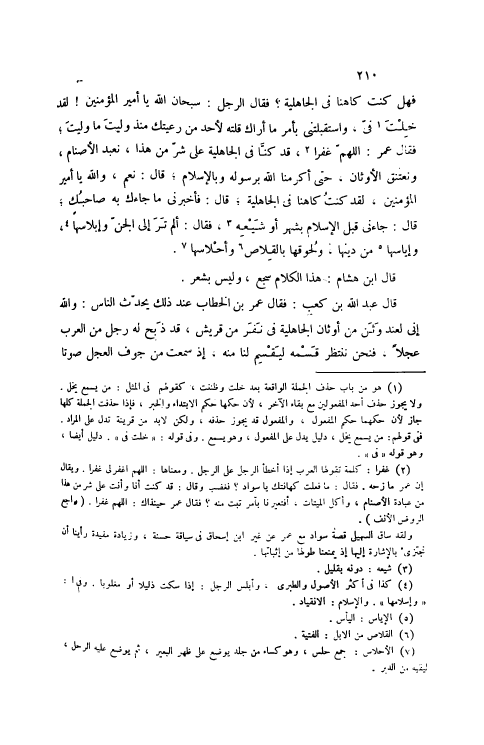 ٢١٠
فهل كنت كاهنا فى الجاهلية ؟ فقال الرجل : سبحان الله يا أمير المؤمنين ! لقد
خِلْتَ ١ فىّ ، واستقبلتنى بأمر ما أراك قلته لأحد من رعيتك منذ وليتَ ما وليت ؛
فقال عمر : اللهمّ غفرا ٢ ، قد كنَّا فى الجاهلية على شرّ من هذا ، نعبد الأصنام ،
ونعتنق الأوثان ، حتَّى أكرمنا الله برسوله وبالإسلام ؛ قال : نعم ، والله يا أمير
المؤمنين ، لقد كنتُ كاهنا فى الجاهلية ؛ قال : فأخبرنى ما جاءك به صاحبُك ؛
قال : جاءنى قبل الإسلام بشهر أو شَيْعِه ٣ ، فقال : ألم تَرَ إلى الجنّ وإبلاسها ٤ ،
وإياسها ٥ من دينها ، ولُحوقها بالقِلاص ٦ وأحْلاسها ٧ .
قال ابن هشام : هذا الكلام سجع ، وليس بشعر .
قال عبد الله بن كعب : فقال عمر بن الخطاب عند ذلك يحدّث الناس : والله
إنى لعند وثَن من أوثان الجاهلية فى نَفَر من قريش ، قد ذَبح له رجل من العرب
عجلاً ، فنحن ننتظر قَسْمه ليَقْسِم لنا منه ، إذ سمعت من جوف العجل صوتا
(١) هو من باب حذف الجملة الواقعة بعد خلت وظننت ، كقولهم فى المثل : من يسمع يخل .
ولا يجوز حذف أحد المفعولين مع بقاء الآخر ، لأن حكمها حكم الابتداء والخبر ، فإذا حذفت الجملة كلها
جاز لأن حكمهما حكم المفعول ، والمفعول قد يجوز حذفه ، ولكن لابد من قرينة تدل على المراد .
فى قولهم : من يسمع يخل ، دليل يدل على المفعول ، وهو يسمع . وفى قوله : « خلت فى » . دليل أيضا ،
وهو قوله « فى » .
(٢) غفرا : كلمة تقولها العرب إذا أخطأ الرجل على الرجل . ومعناها : اللهم اغفر لى غفرا . ويقال
إن عمر مازحه . فقال : ما فعلت كهانتك يا سواد ؟ فغضب وقال : قد كنت أنا وأنت على شر من هذا
من عبادة الأصنام ، وأكل الميتات ، أفتعيرنا بأمر تبت منه ؟ فقال عمر حينذاك : اللهم غفرا . ( راجع
الروض الأنف ) .
ولقد ساق السهيلى قصة سواد مع عمر عن غير ابن إسحاق فى سياقة حسنة ، وزيادة مفيدة رأينا أن
نجتزئ بالإشارة إليها إذ يمنعنا طولها من إثباتها .
(٣) شيعه : دونه بقليل .
(٤) كذا فى أكثر الأصول والطبرى ، وأبلس الرجل : إذا سكت ذليلا أو مغلوبا . وفى ا :
« وإسلامها » . والإسلام : الانقياد .
(٥) الإياس : اليأس .
(٦) القلاص من الابل : الفتية .
(٧) الأحلاس : جمع حلس ، وهو كساء من جلد يوضع على ظهر البعير ، ثم يوضع عليه الرحل ،
ليقيه من الدبر .